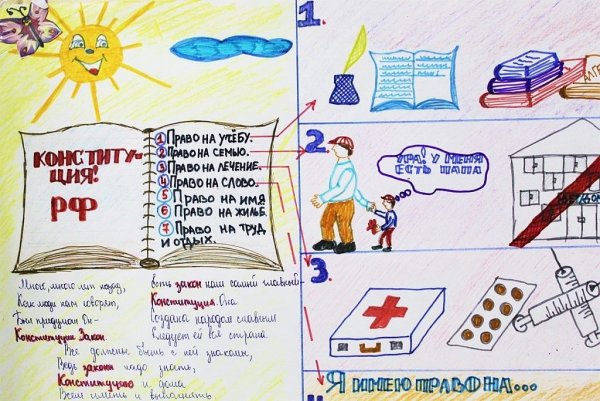 КОНСТИТУ-
ЦИЯ!
РФ
1 ПРАВО НА УЧЁБУ.
2 ПРАВО НА СЕМЬЮ.
3 ПРАВО НА ЛЕЧЕНИЕ.
4 ПРАВО НА СЛОВО.
5 ПРАВО НА ИМЯ
6 ПРАВО НА ЖИЛЬЁ.
7 ПРАВО НА ТРУД
И ОТДЫХ.
Много, много лет назад,
Как люди нам говорят,
Конституция Закон.
Есть закон наш самый главный-
Конституция. Она
Создана народом славным.
Следует ей вся страна.
Все должны быть с ней знакомы,
Ведь законы надо знать,
Конституцию и дома
Всем иметь и выполнять.
1.
2.
УРА! У МЕНЯ
ЕСТЬ ПАПА
3.
Я ИМЕЮ ПРАВО НА...